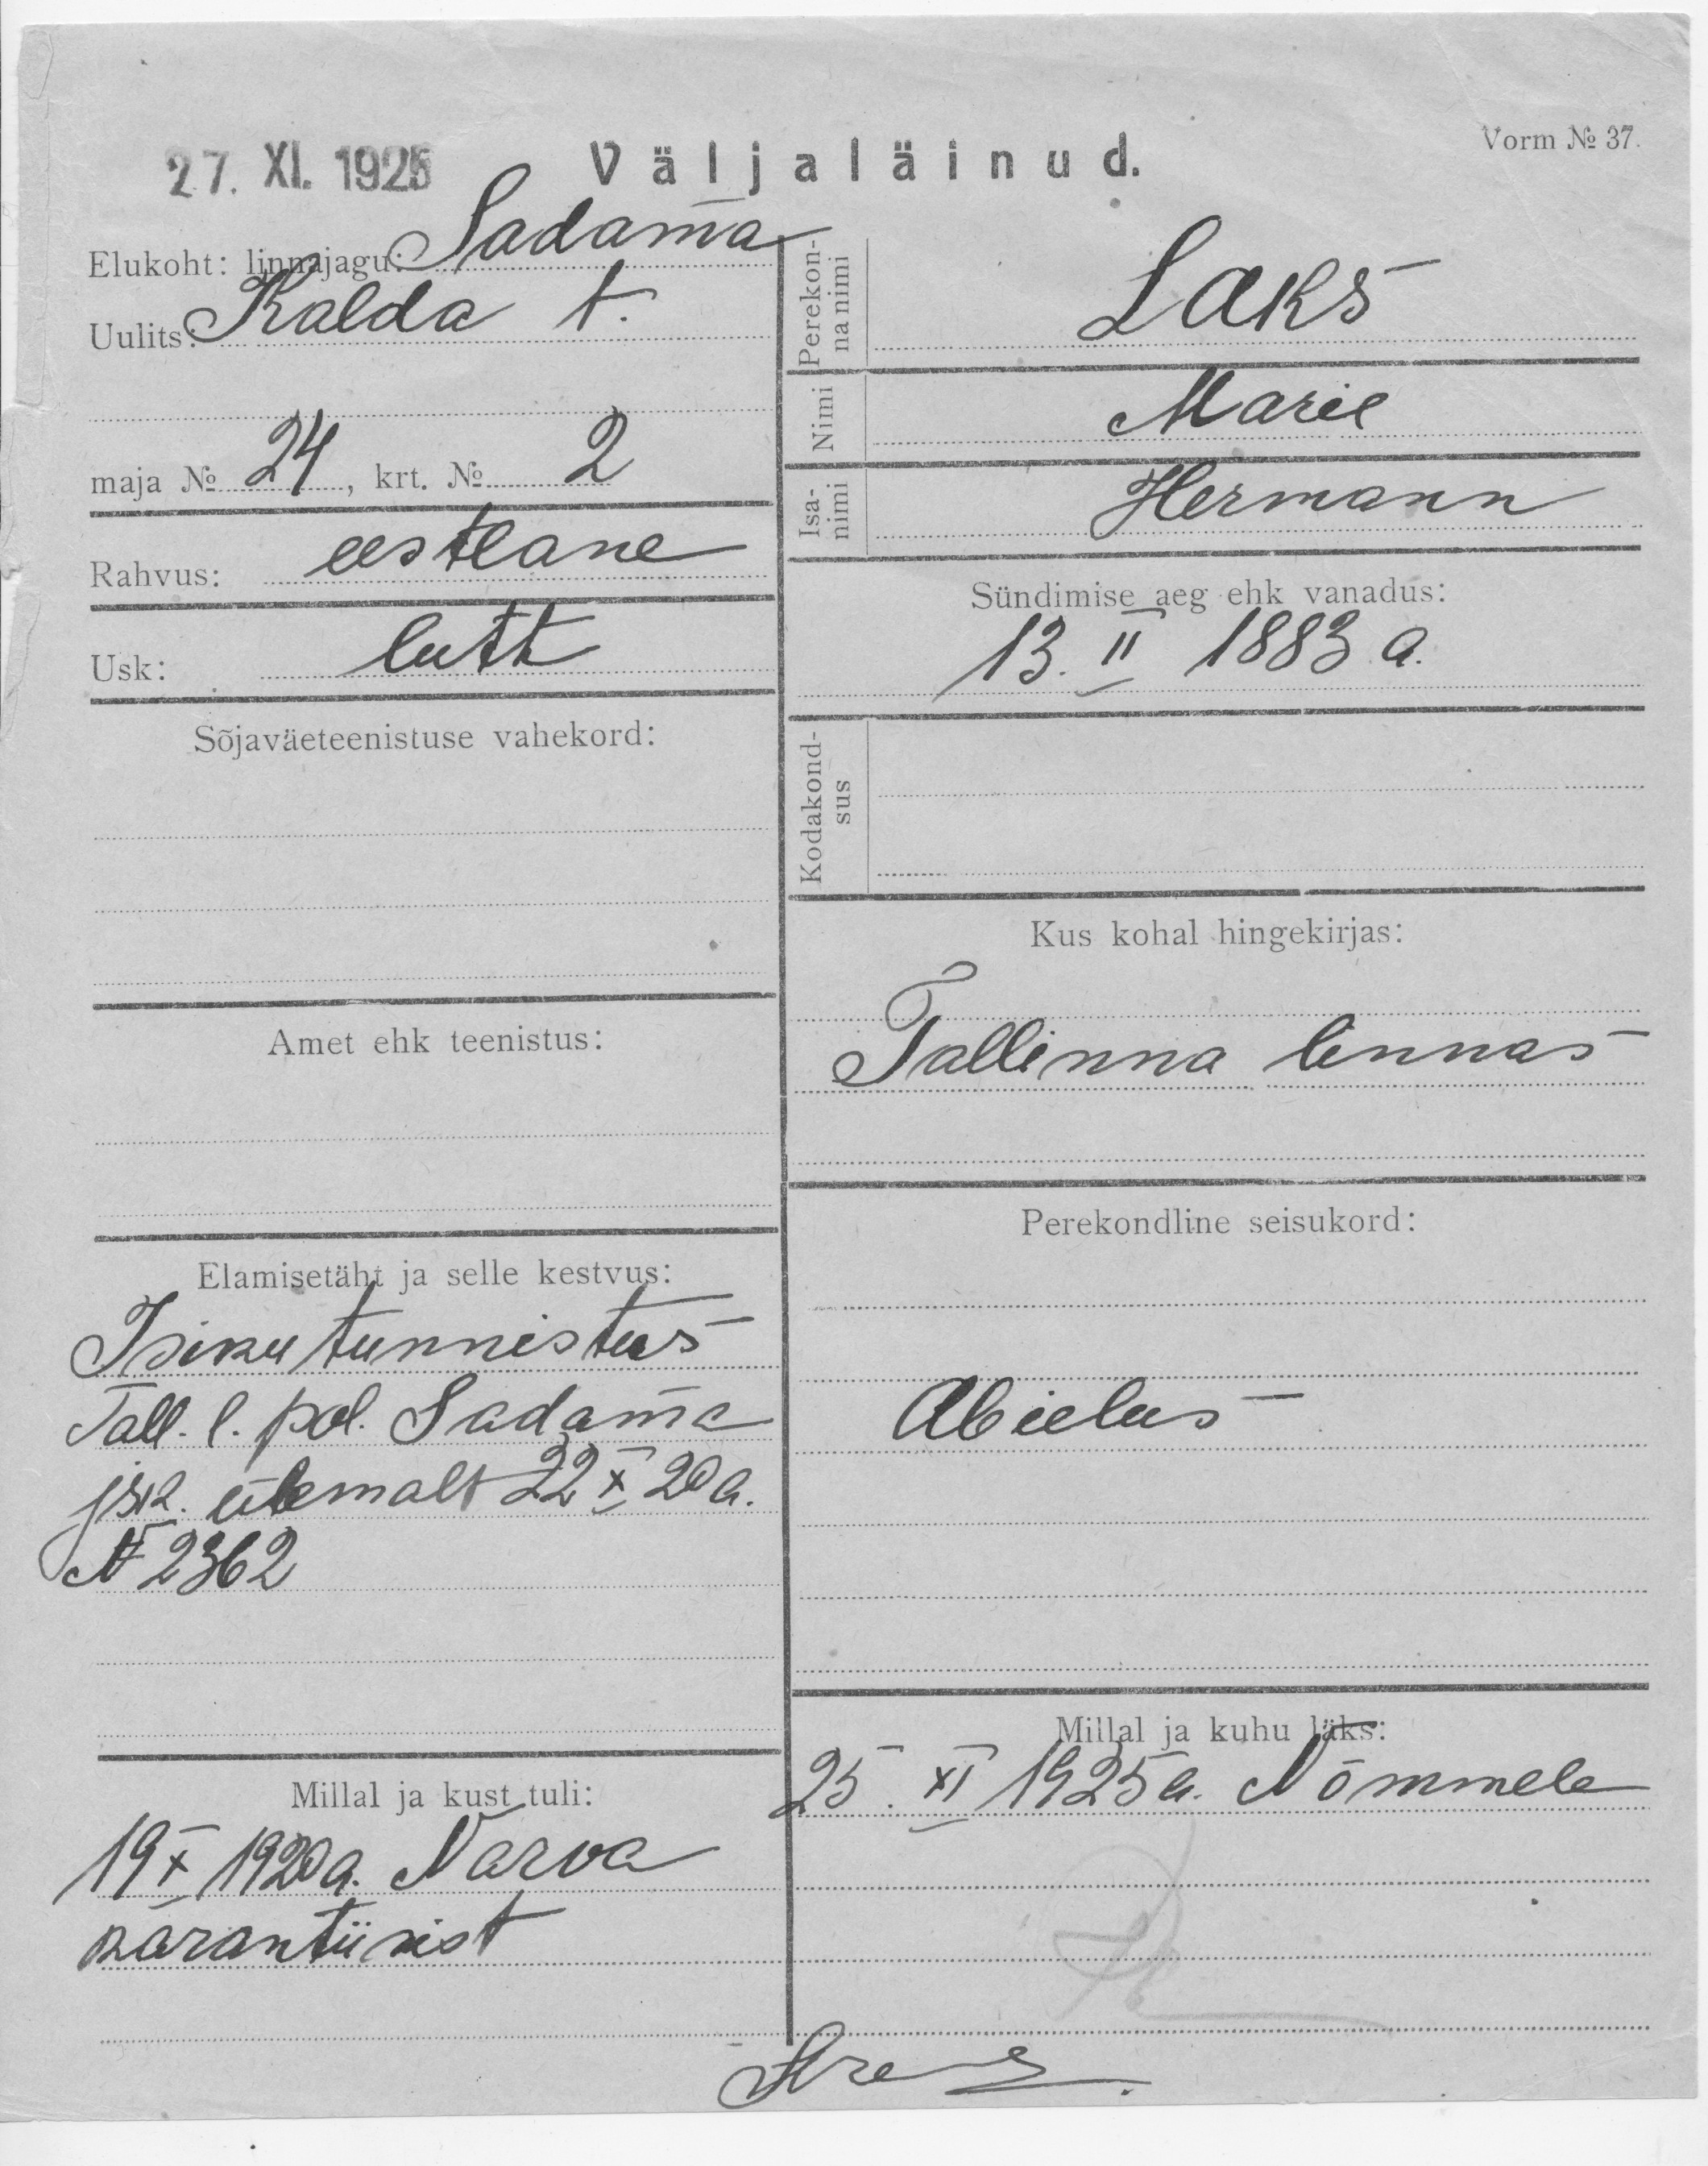 27. XI. 1925
Väljaläinud.
Vorm № 37.
Elukoht: linnajagu: Sadama
Uulits: Kalda t.
maja № 24, krt. № 2
Rahvus: eestlane
Usk: lutt
Sõjaväeteenistuse vahekord:
Amet ehk teenistus:
Elamisetäht ja selle kestvus:
Isikutunnistus
Tall. l. pol. Sadama
jsk. ülemalt 22 X 20 a.
№ 2362
Millal ja kust tuli:
19 X 1920 a. Narva
karantiinist
Perekon-
na nimi
Laks
Nimi
Marie
Isa-
nimi
Hermann
Sündimise aeg ehk vanadus:
13. II 1883 a.
Kodakond-
sus
Kus kohal hingekirjas:
Tallinna linnas
Perekondline seisukord:
Abielus
Millal ja kuhu läks:
25. XI 1925 a. Nõmmele